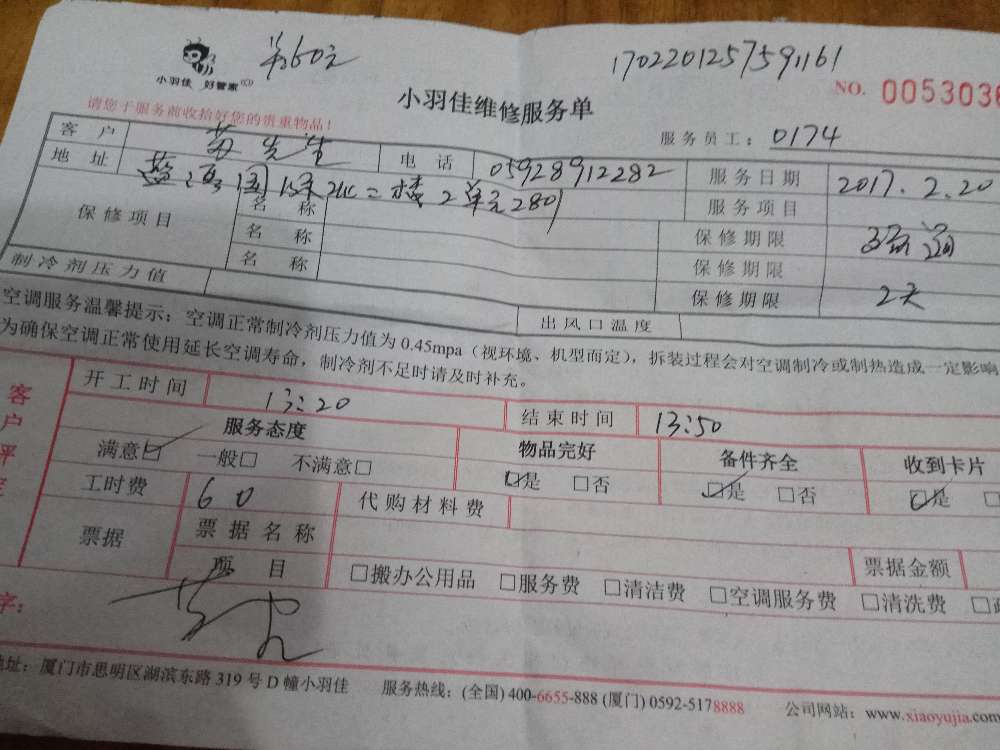 小羽佳 好管家
60元
1702201257591161
小羽佳维修服务单
NO. 0053036
请您于服务前收拾好您的贵重物品!
服务员工: 0174
客户 先生 电话 05928912282 服务日期 2017.2.20
地址 二楼2单元2801 服务项目
保修项目 名称 保修期限
名称 保修期限
名称 保修期限 2天
制冷剂压力值 出风口温度
空调服务温馨提示: 空调正常制冷剂压力值为 0.45mpa (视环境、机型而定), 拆装过程会对空调制冷或制热造成一定影响
为确保空调正常使用延长空调寿命, 制冷剂不足时请及时补充。
开工时间 13:20 结束时间 13:50
客户评
服务态度 物品完好 备件齐全 收到卡片
满意☑ 一般□ 不满意□ ☑是 □否 ☑是 □否 ☑是 □
工时费 60 代购材料费
票据 票据名称 票据金额
项目 □搬办公用品 □服务费 □清洁费 □空调服务费 □清洗费 □
字:
地址: 厦门市思明区湖滨东路 319 号 D 幢小羽佳 服务热线: (全国) 400-6655-888 (厦门) 0592-5178888 公司网站: www.xiaoyujia.com